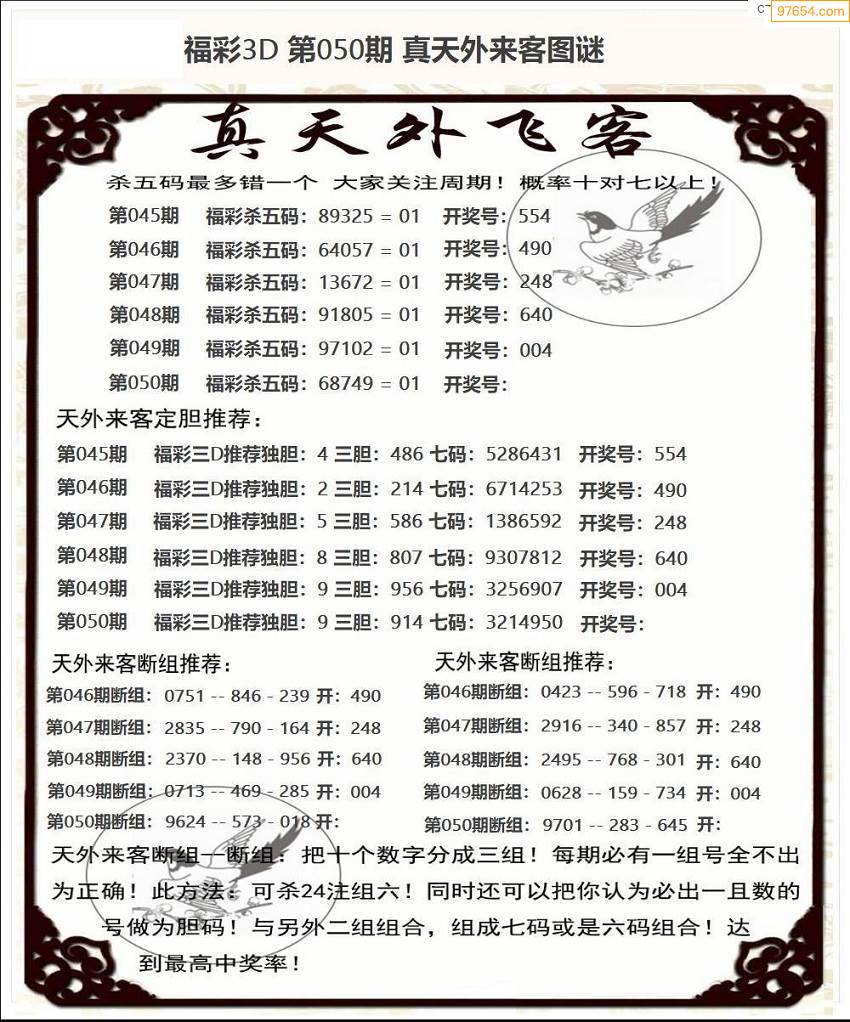 CT
97654.com
福彩3D 第050期 真天外来客图谜
真天外飞客
杀五码最多错一个 大家关注周期！概率十对七以上！
第045期 福彩杀五码：89325 = 01 开奖号：554
第046期 福彩杀五码：64057 = 01 开奖号：490
第047期 福彩杀五码：13672 = 01 开奖号：248
第048期 福彩杀五码：91805 = 01 开奖号：640
第049期 福彩杀五码：97102 = 01 开奖号：004
第050期 福彩杀五码：68749 = 01 开奖号：
天外来客定胆推荐：
第045期 福彩三D推荐独胆：4 三胆：486 七码：5286431 开奖号：554
第046期 福彩三D推荐独胆：2 三胆：214 七码：6714253 开奖号：490
第047期 福彩三D推荐独胆：5 三胆：586 七码：1386592 开奖号：248
第048期 福彩三D推荐独胆：8 三胆：807 七码：9307812 开奖号：640
第049期 福彩三D推荐独胆：9 三胆：956 七码：3256907 开奖号：004
第050期 福彩三D推荐独胆：9 三胆：914 七码：3214950 开奖号：
天外来客断组推荐：
第046期断组：0751 -- 846 - 239 开：490
第047期断组：2835 -- 790 - 164 开：248
第048期断组：2370 -- 148 - 956 开：640
第049期断组：0713 -- 469 - 285 开：004
第050期断组：9624 -- 573 - 018 开：
天外来客断组推荐：
第046期断组：0423 -- 596 - 718 开：490
第047期断组：2916 -- 340 - 857 开：248
第048期断组：2495 -- 768 - 301 开：640
第049期断组：0628 -- 159 - 734 开：004
第050期断组：9701 -- 283 - 645 开：
天外来客断组—断组：把十个数字分成三组！每期必有一组号全不出
为正确！此方法：可杀24注组六！同时还可以把你认为必出一且数的
号做为胆码！与另外二组组合，组成七码或是六码组合！达
到最高中奖率！